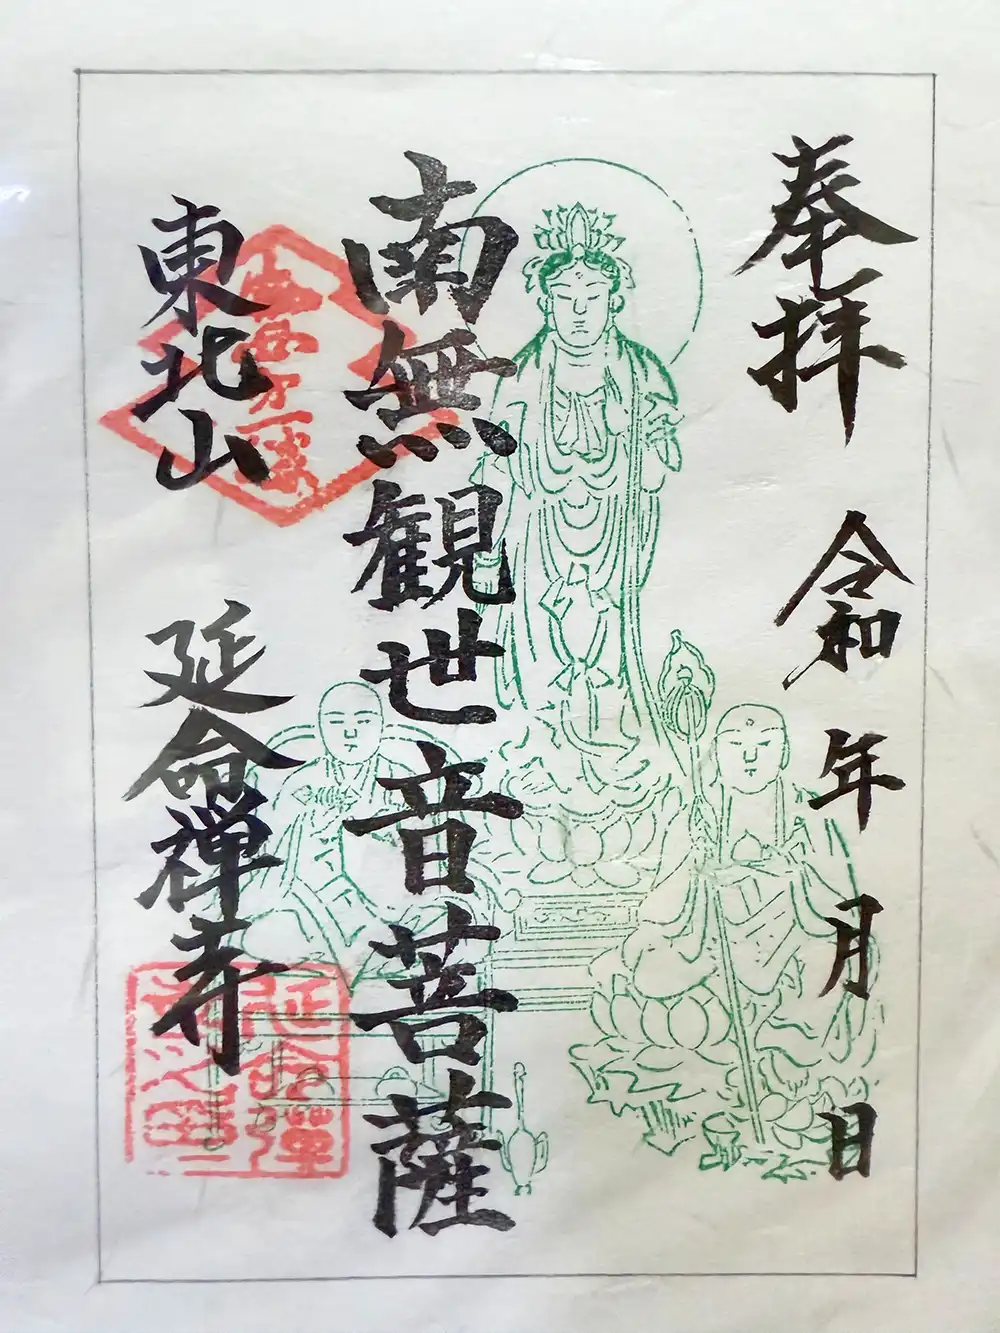 奉拝 令和 年 月 日
南無観世音菩薩
東北山 延命禅寺